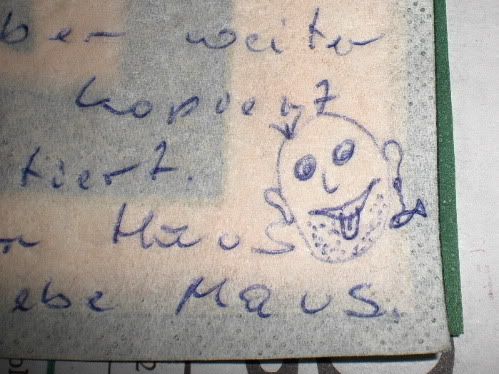 ber weiter
kopiert
tiert.
n Maus
ebe Maus.